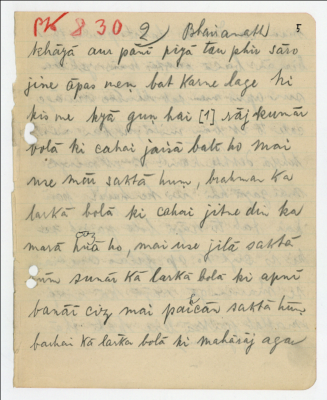 PK 830 2) Bhaianath 5
khāyā aur pānī pīyā tau phir sāro
jine āpas meṃ bat karne lage ki
kis me kyā guṇ hai [1] rājkumār
bolā ki cahai jaisā bab ho mai
use mār saktā huṃ, brahman ka
larkā bolā ki cahai jitne din ka
marā huā ho, mai use jilā saktā
hūṃ sunār kā larkā bolā ki apnī
banāī ciz mai paicān saktā hūṃ,
barhai kā larkā bolā ki mahārāj aga